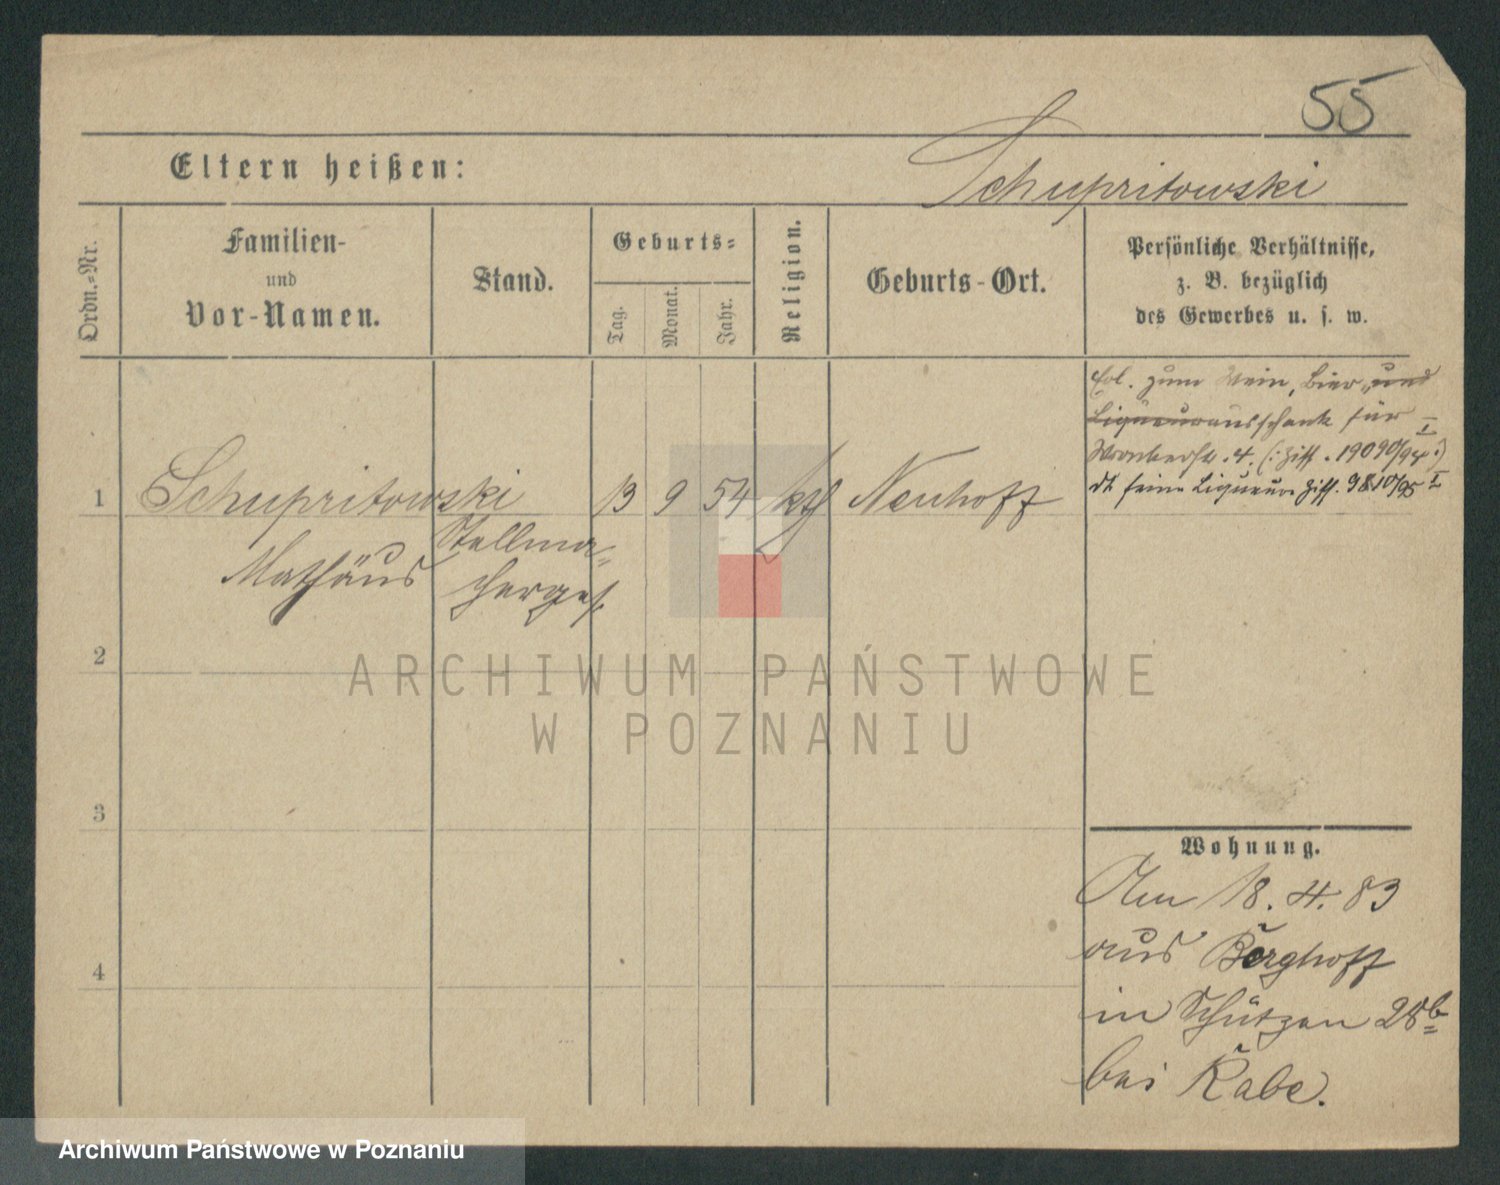 55
Eltern heißen:
Schupritowski
Ordn.-Nr.
Familien-
und
Vor-Namen.
Stand.
Geburts-
Tag.
Monat.
Jahr.
Religion.
Geburts-Ort.
Persönliche Verhältnisse,
z. B. bezüglich
des Gewerbes u. s. w.
Erl. zum Wein, Bier, und
Liqueurausschank für
Wronkerstr. 4. (: Ziff. 19090/94 I :)
dt. feine Liqueure Ziff. 9810/95 I
1 Schupritowski 13 9 54 kth Neuhoff
Mathäus
Stellma-
cherges.
2
3
4
Wohnung.
Am 18. 4. 83
aus Berghoff
in Schützen 28b
bei Rabe.
ARCHIWUM PAŃSTWOWE
W POZNANIU
Archiwum Państwowe w Poznaniu